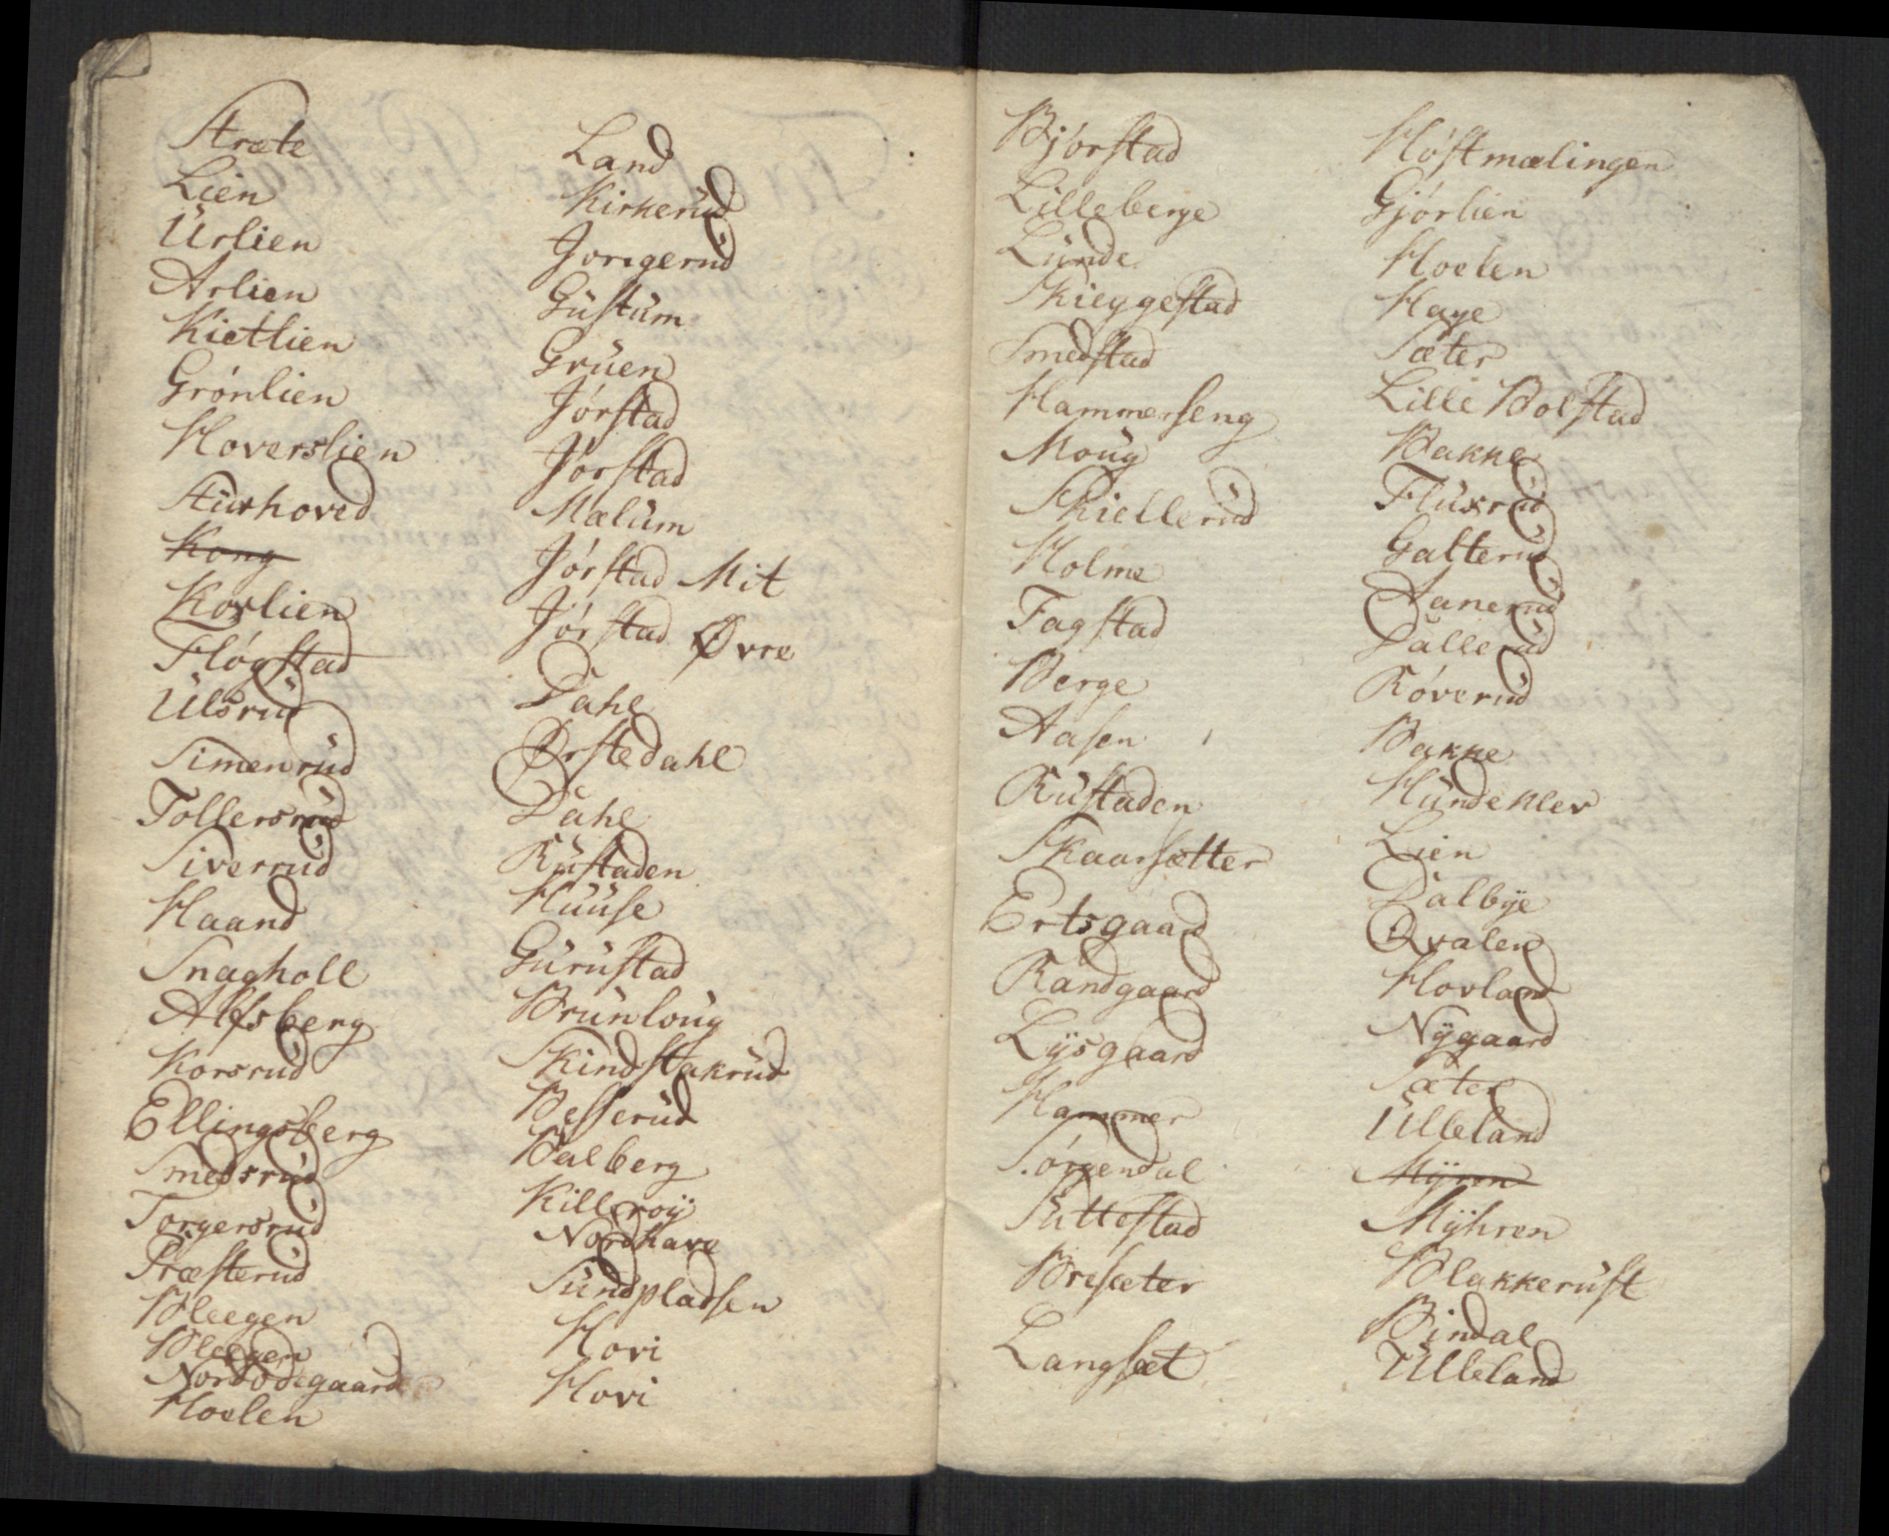 Stræte
Lien
Ürlien
Arlien
Kietlien
Grónlien
Hoverslien
Stürhoved
Kong
Korlien
Flógstad
Ülsrüd
Simenrüd
Tollersrüd
Siverrüd
Haand
Snagholl
Alfsberg
Korsrüd
Ellingsberg
Smedsrüd
Torgersrüd
Præsterüd
Bleegen
Bleegen
Nordódegaard
Hoelen
Land
Kirkerüd
Jorigerüd
Güstüm
Grüen
Jórstad
Jórstad
Mælüm
Jórstad Mit
Jórstad Øvre
Dahl
Ørstedahl
Dahl
Rüstaden
Hüüse
Gürüstad
Brünloüg
Skindstakrüd
Besserüd
Balberg
Killeroÿ
Nordhave
Sündpladsen
Hovi
Hovi
Bjórstad
Lilleberge
Lünde
Skieggestad
Smedstad
Hammerseng
Moüg
Skiellerüd
Holme
Fagstad
Berge
Aasen
Rüstaden
Skaarsætter
Ertsgaard
Randgaard
Lÿsgaard
Hammer
Sórgendal
Süttestad
Bresæter
Langsæt
Hóstmælingen
Gjórlien
Hoelen
Hage
Sæter
Lille Bolstad
Bakke
Flüxrüd
Galterüd
Janerüd
Dallerüd
Róverüd
Bakke
Hündeklev
Lien
Dalbÿe
Qvalen
Hovland
Nÿgaard
Sæter
Ülleland
Mÿren
Mÿhren
Blakkerüst
Bindal
Ülleland